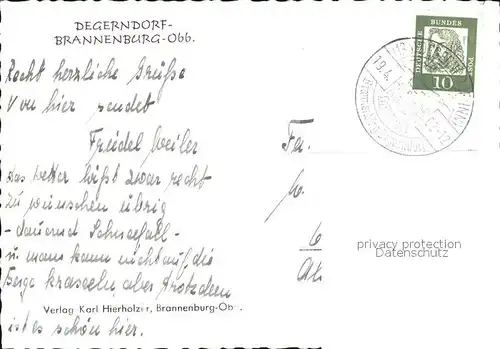 DEGERNDORF-
BRANNENBURG-Obb.
Recht herzliche Grüße
Von hier sendet
Friedel Weiler
Das Wetter läßt zwar recht
zu wünschen übrig
- dauernd Schneefall -
u. mann kann nicht auf die
Berge kraxeln, aber trotzdem
ist es schön hier.
Verlag Karl Hierholzer, Brannenburg-Ob
DEUTSCHE
BUNDES
POST
10
19.4.
Fa.
privacy protection
Datenschutz